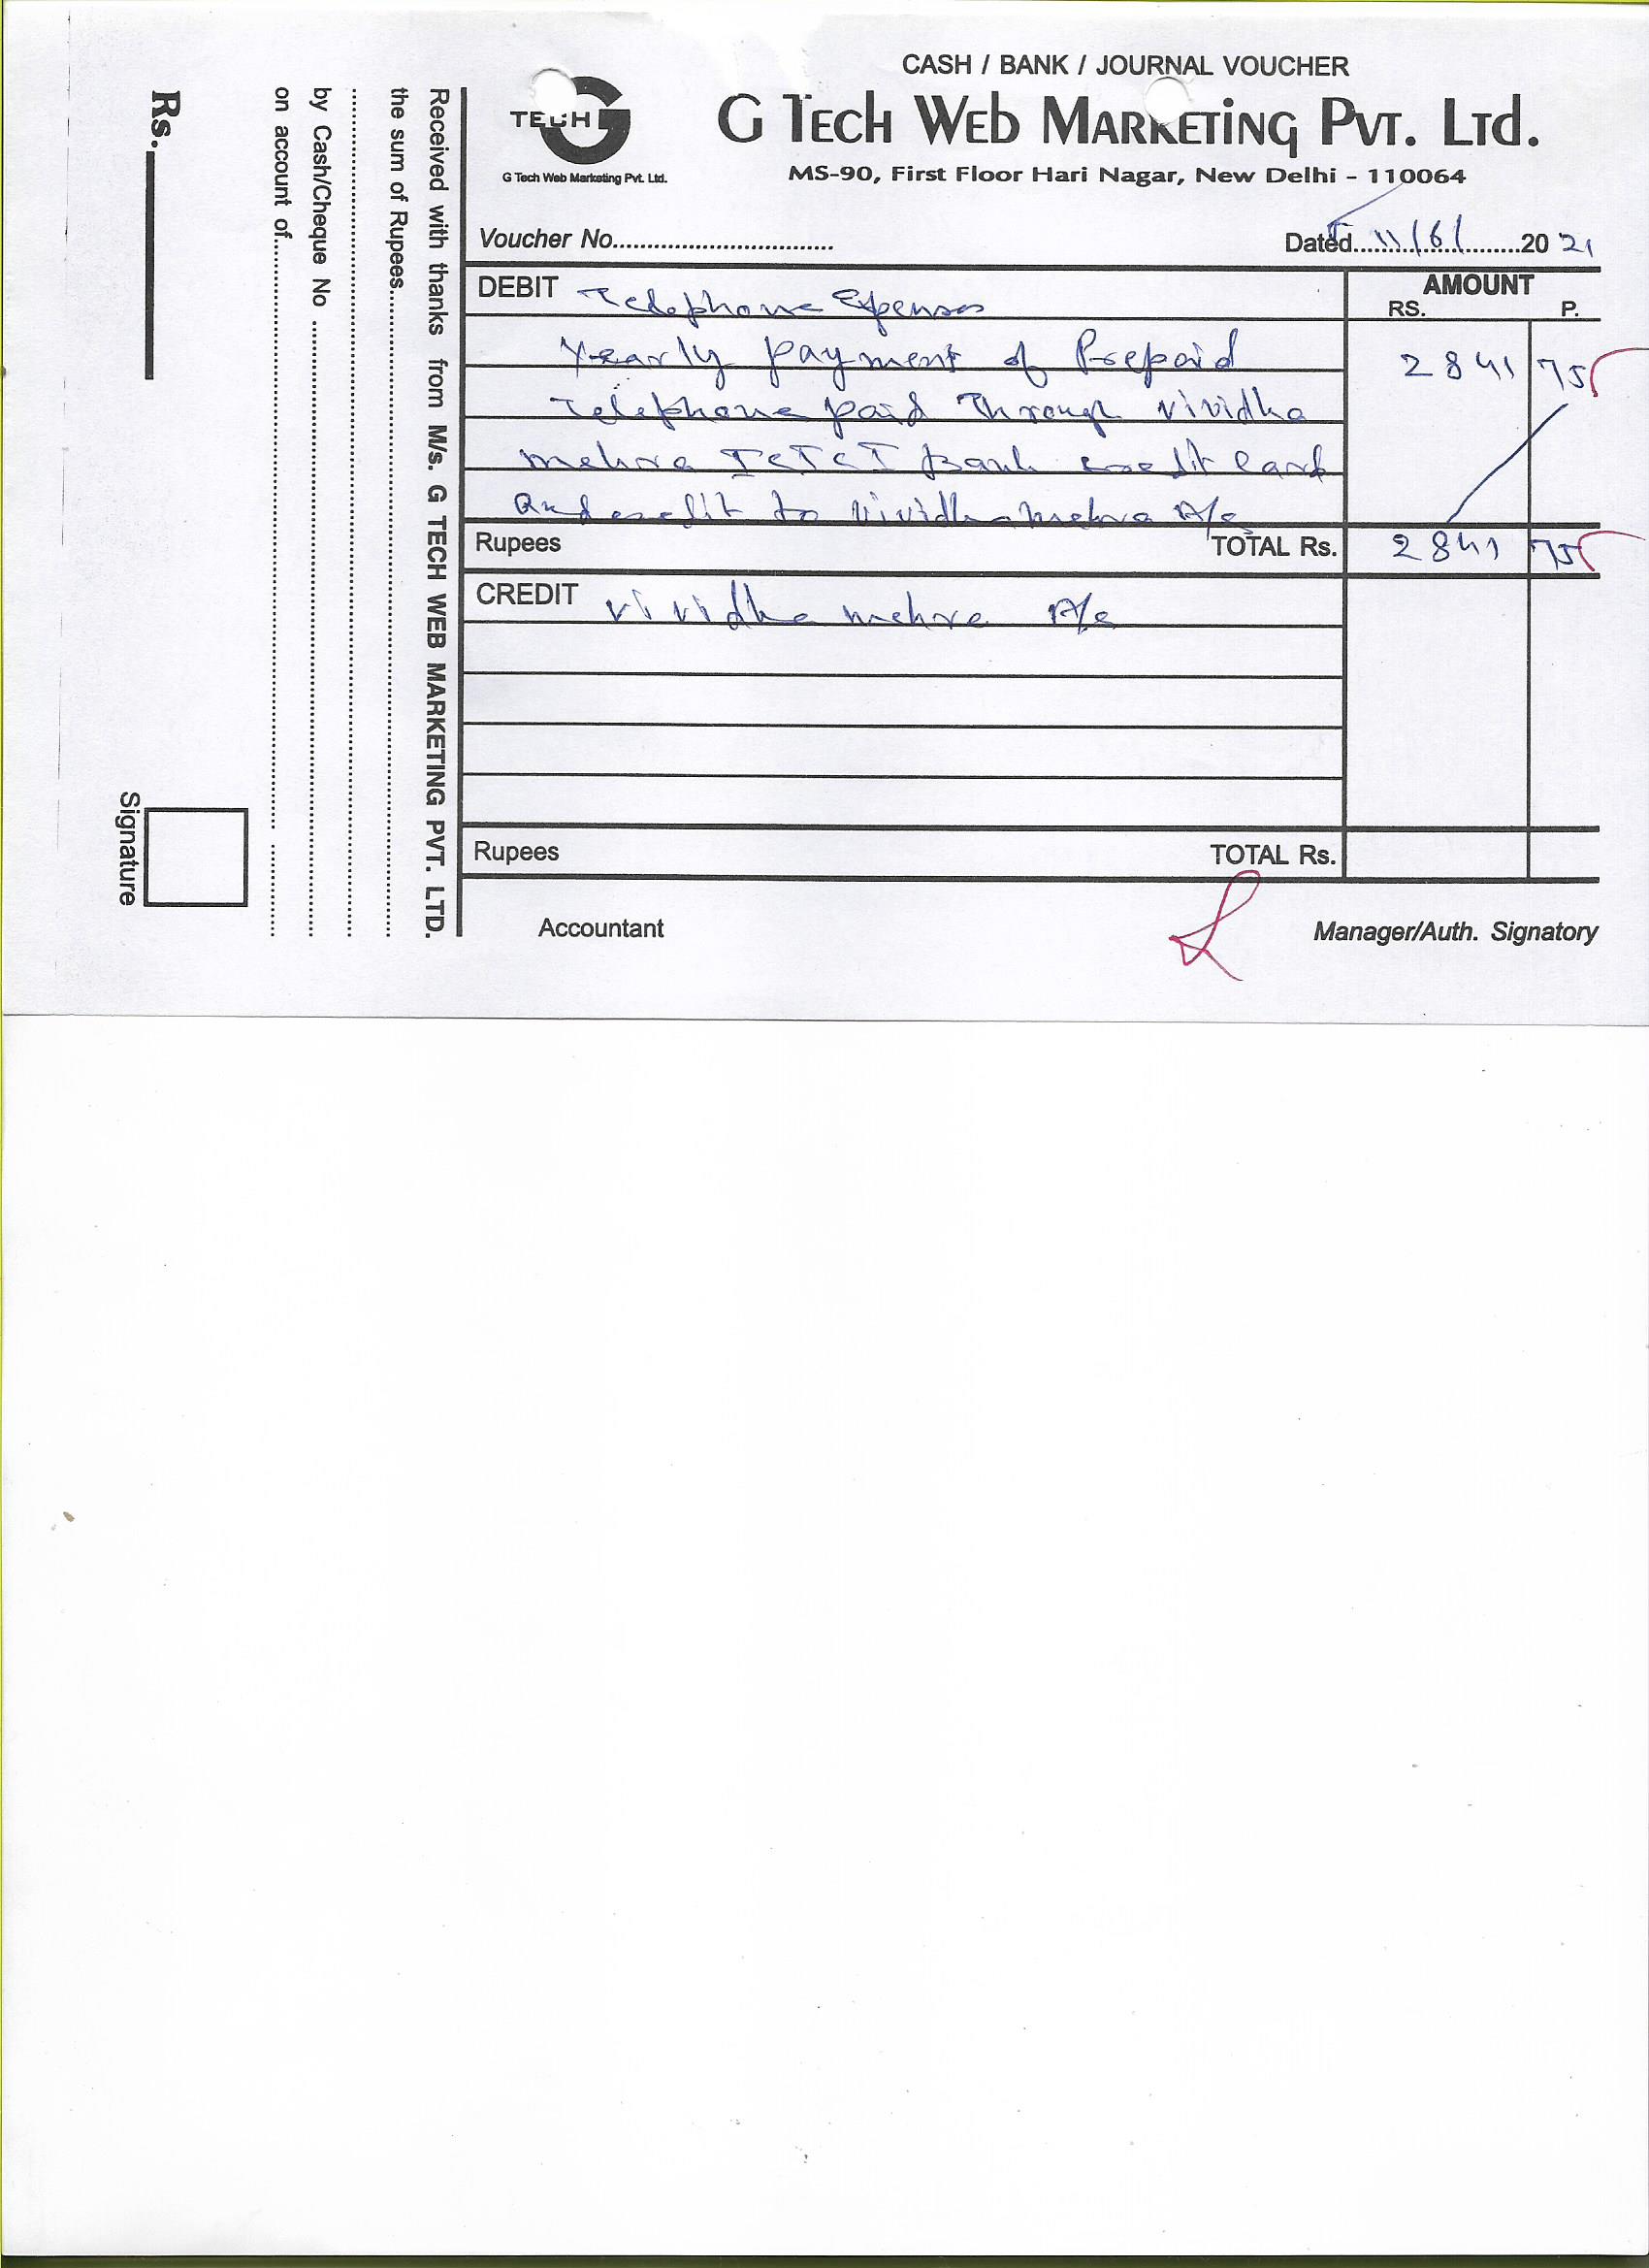 CASH / BANK / JOURNAL VOUCHER
TECH
G Tech Web Marketing Pvt. Ltd.
G Tech Web Marketing Pvt. Ltd.
MS-90, First Floor Hari Nagar, New Delhi - 110064
Voucher No................................
Dated...11/6/........2021
DEBIT Telephone Expenses
AMOUNT
RS. P.
Yearly payment of Prepaid 2841 75
Telephone paid Through Vividha
Mehra ICICI Bank credit Card
and credit to Vividha Mehra A/c
Rupees TOTAL Rs. 2841 75
CREDIT Vividha Mehra A/c
Rupees TOTAL Rs.
Accountant
Manager/Auth. Signatory
Received with thanks from M/s. G TECH WEB MARKETING PVT. LTD.
the sum of Rupees
by Cash/Cheque No
on account of
Rs.
Signature